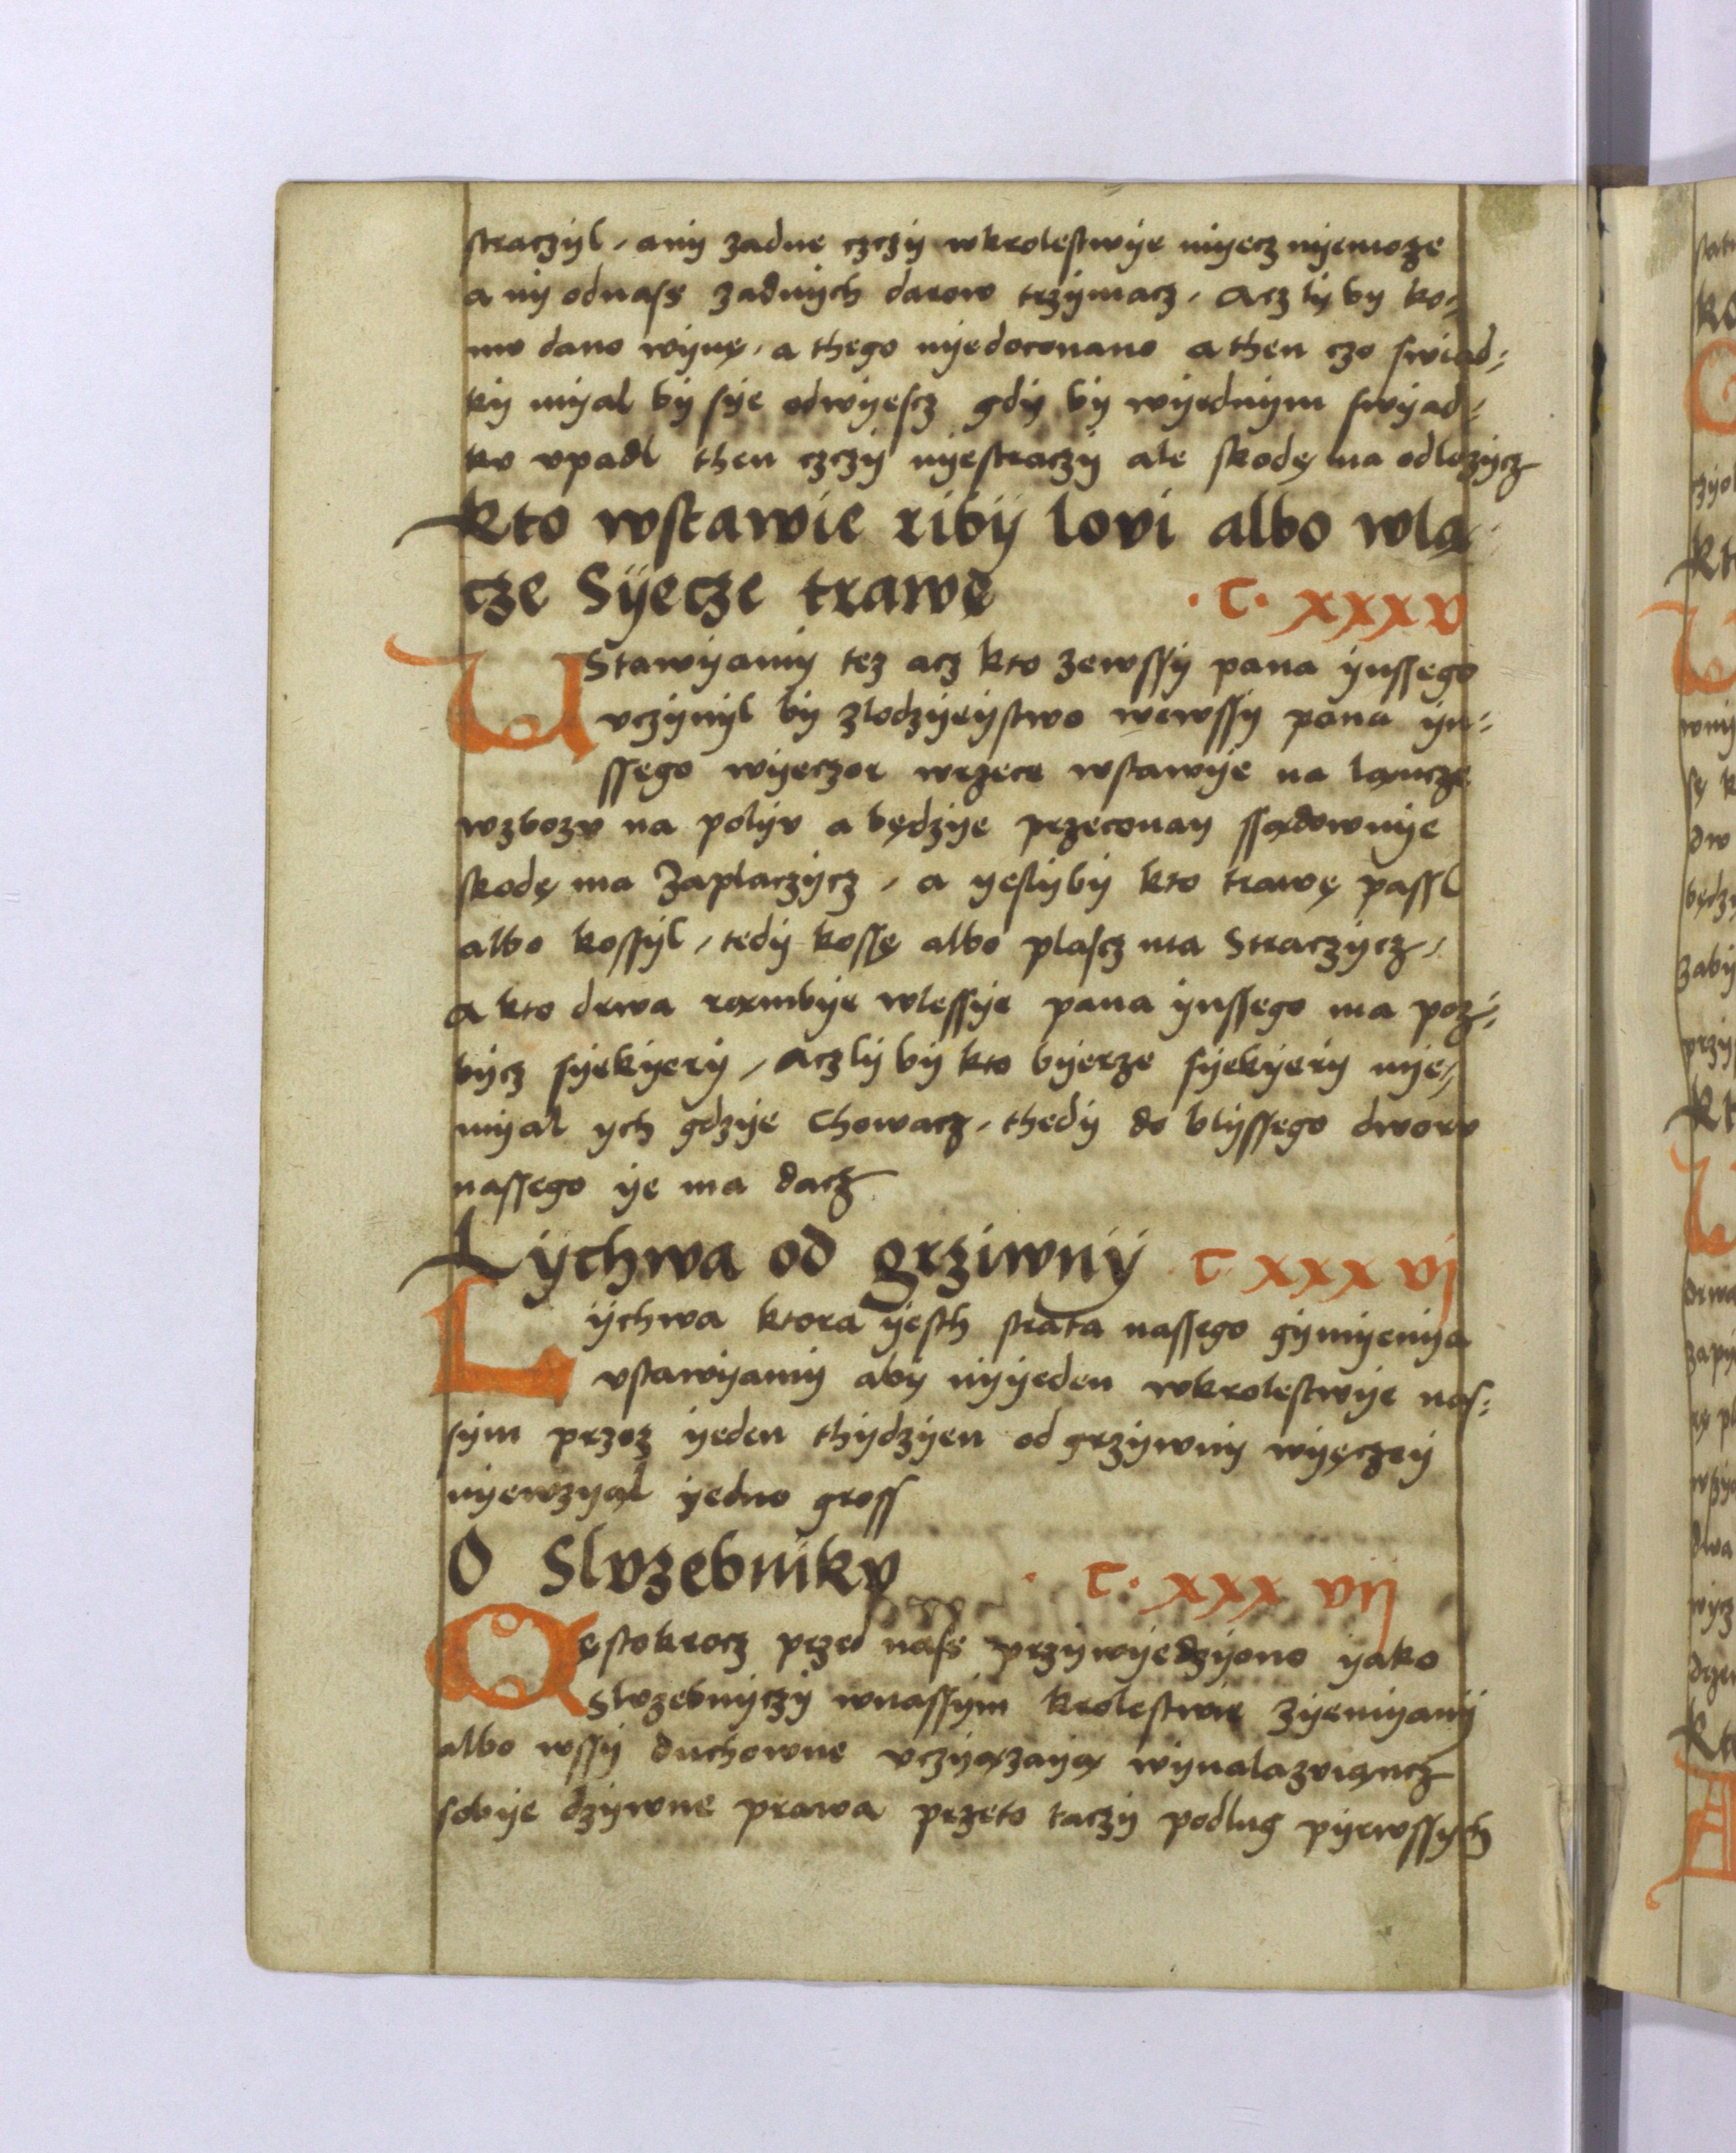 straczÿl, anÿ zadne czczÿ wkrolestwÿe mÿecz nÿemoze
a nÿ odnass zadnÿch darow trzÿmacz, Aczlÿ bÿ ko=
mv dano wÿnę, a thego nÿedoconano a then czo swiad=
kÿ mÿal bÿ sÿe odwÿescz gdÿ bÿ wÿednÿm swÿad=
kv vpadl then czczÿ nÿestraczÿ ale skodę ma odlozÿcz
Kto wstawie ribÿ lovi albo wlą
cze Sÿecze trawę · C · xxxv
UStawÿamÿ tez acz kto zewssÿ pana ÿnssego
vczÿnÿl bÿ zlodzÿeÿstwo wewssÿ pana ÿn=
ssego wÿeczor wrzece wstawÿe na lancze
wzbozv na polÿv a będzÿe przeconan ssądownÿe
skodę ma Zaplaczÿcz, a ÿeslÿbÿ kto trawę passl
albo kossÿl, tedÿ kossę albo plascz ma Straczÿcz,
a kto drwa rąmbÿe wlessÿe pana ÿnssego ma poz=
bÿcz sÿekÿerÿ, Aczlÿ bÿ kto bÿerze sÿekÿerÿ nÿe,
mÿal ÿch gdzÿe Chowacz, thedÿ do blÿssego dworv
nassego ÿe ma dacz
Lÿchwa od grziwnÿ C xxx vj
Lÿchwa ktora ÿesth strata nassego gÿmÿenÿa
vstawÿamÿ abÿ nÿÿeden wkrolestwÿe nas=
sÿm przez ÿeden thÿdzÿen od grzÿwnÿ wÿęczeÿ
nÿewzÿąl ÿedno gross
O Slvzebnikv · C · xxx vij
Cęstokrocz przed nass przÿwÿedzÿono ÿako
slvzebnÿczÿ wnassÿm krolestwie zÿemÿanÿ
albo wssÿ duchowne vczÿązaÿą wÿnalazvięncz
sobÿe dzÿwne prawa przeto taczÿ podlug pÿrwssÿch